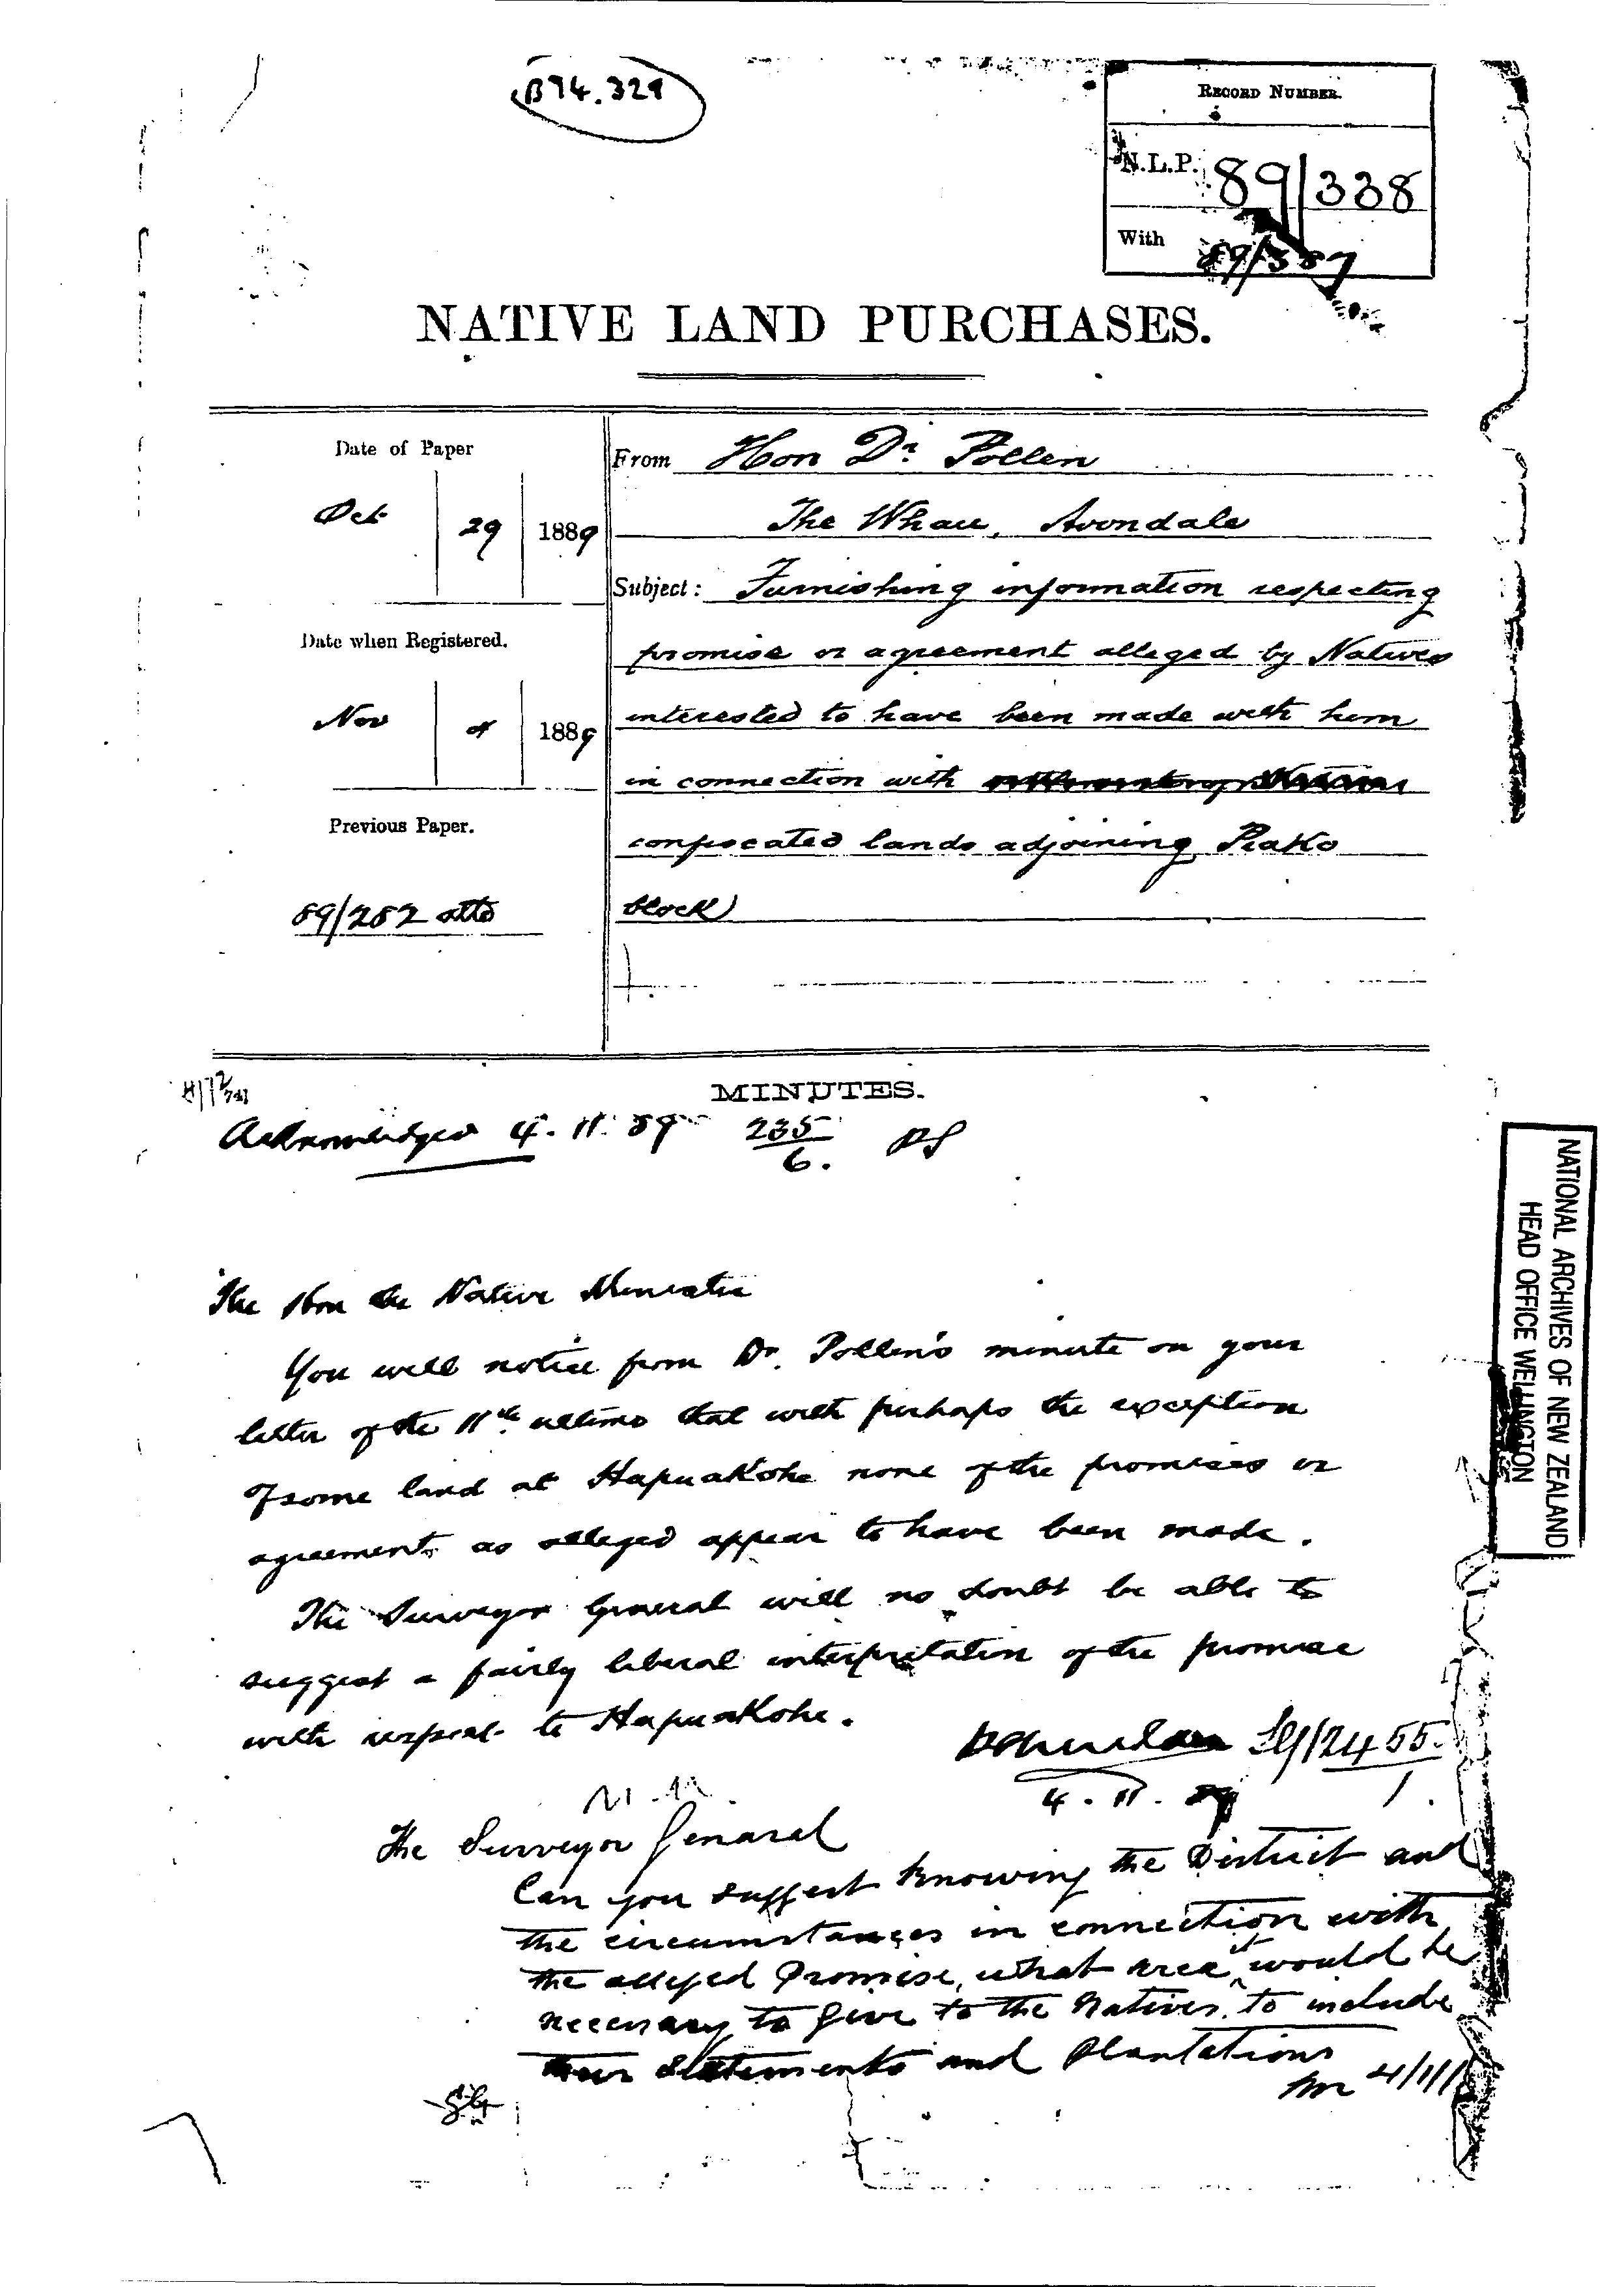 B74.329
RECORD NUMBER.
N.L.P. 89/338
With 89/337
NATIVE LAND PURCHASES.
Date of Paper
Oct 29 1889
Date when Registered.
Nov 4 1889
Previous Paper.
89/282 attd
From Hon Dr Pollen
The Whau, Avondale
Subject: Furnishing information respecting
promise or agreement alleged by Natives
interested to have been made with him
in connection with
confiscated lands adjoining Piako
block
MINUTES.
Acknowledged 4. 11. 89 235/6.
The Hon the Native Minister
You will notice from Dr. Pollen's minute on your
letter of the 11th ultimo that with perhaps the exception
of some land at Hapuakohe none of the promises or
agreements as alleged appear to have been made.
The Surveyor General will no doubt be able to
suggest a fairly liberal interpretation of the promise
with respect to Hapuakohe.
4. 11. 89
The Surveyor General
Can you suggest knowing the District and
the circumstances in connection with
the alleged Promise, what area it would be
necessary to give to the Natives, to include
their Settlements and Plantations
NATIONAL ARCHIVES OF NEW ZEALAND
HEAD OFFICE WELLINGTON